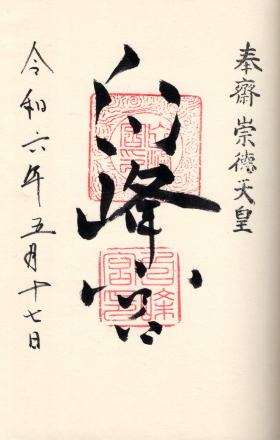 奉齋崇德天皇
白峰宮
令和六年五月十七日